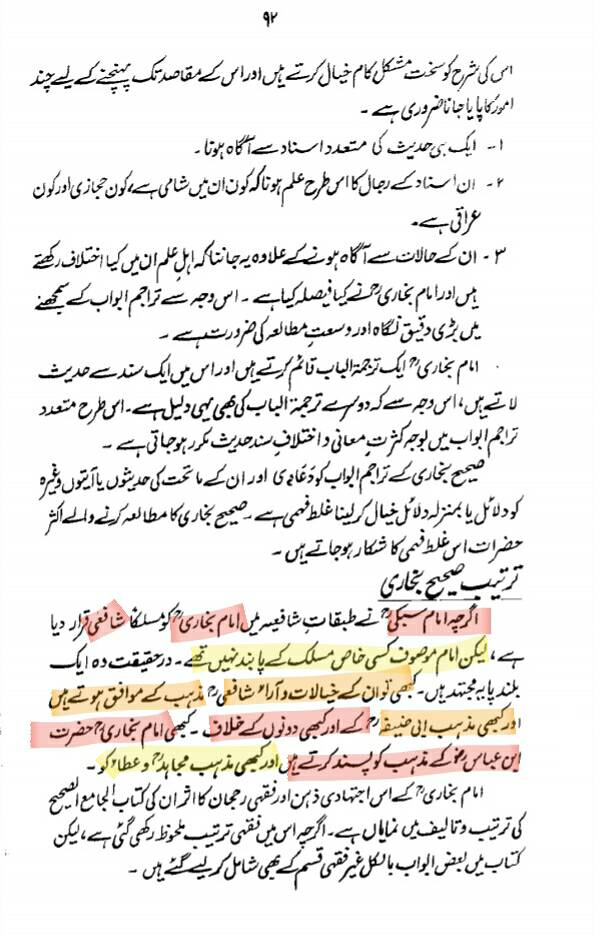 ۹۲
اس کی شرح کو سخت مشکل کام خیال کرتے ہیں اور اس کے مقاصد تک پہنچنے کے لیے چند
امور کا پایا جانا ضروری ہے ۔
۱- ایک ہی حدیث کی متعدد اسناد سے آگاہ ہونا ۔
۲- ان اسناد کے رجال کا اس طرح علم ہونا کہ کون ان میں شامی ہے، کون حجازی اور کون
عراقی ہے۔
۳- ان کے حالات سے آگاہ ہونے کے علاوہ یہ جاننا کہ اہل علم ان میں کیا اختلاف رکھتے
ہیں اور امام بخاریؒ نے کیا فیصلہ کیا ہے ۔ اس وجہ سے تراجم ابواب کے سمجھنے
میں بڑی دقیق نگاہ اور وسعتِ مطالعہ کی ضرورت ہے ۔
امام بخاریؒ ایک ترجمۃ الباب قائم کرتے ہیں اور اس میں ایک سند سے حدیث
لاتے ہیں، اس وجہ سے کہ دوسرے ترجمۃ الباب کی بھی یہی دلیل ہے۔ اس طرح متعدد
تراجم ابواب میں بوجہ کثرتِ معانی و اختلافِ سند حدیث مکرر ہوجاتی ہے ۔
صحیح بخاری کے تراجم ابواب کو دعاوی اور ان کے ماتحت کی حدیثوں یا آیتوں وغیرہ
کو دلائل یا بمنزلہ دلائل خیال کرلینا غلط فہمی ہے ۔ صحیح بخاری کا مطالعہ کرنے والے اکثر
حضرات اس غلط فہمی کا شکار ہوجاتے ہیں ۔
ترتیب صحیح بخاری
اگرچہ امام سبکیؒ نے طبقاتِ شافعیہ میں امام بخاریؒ کو مسلکاً شافعی قرار دیا
ہے، لیکن امام موصوف کسی خاص مسلک کے پابند نہیں تھے ۔ درحقیقت وہ ایک
بلند پایہ مجتہد ہیں۔ کبھی تو ان کے خیالات و آراء شافعیؒ مذہب کے موافق ہوتے ہیں
اور کبھی مذہب ابی حنیفہؒ کے اور کبھی دونوں کے خلاف ۔ کبھی امام بخاریؒ حضرت
ابن عباسؓ کے مذہب کو پسند کرتے ہیں اور کبھی مذہب مجاہدؒ و عطاءؒ کو ۔
امام بخاریؒ کے اس اجتہادی ذہن اور فقہی رجحان کا اثر ان کی کتاب الجامع الصحیح
کی ترتیب و تالیف میں نمایاں ہے۔ اگرچہ اس میں فقہی ترتیب ملحوظ رکھی گئی ہے، لیکن
کتاب میں بعض ابواب بالکل غیر فقہی قسم کے بھی شامل کر لیے گئے ہیں ۔